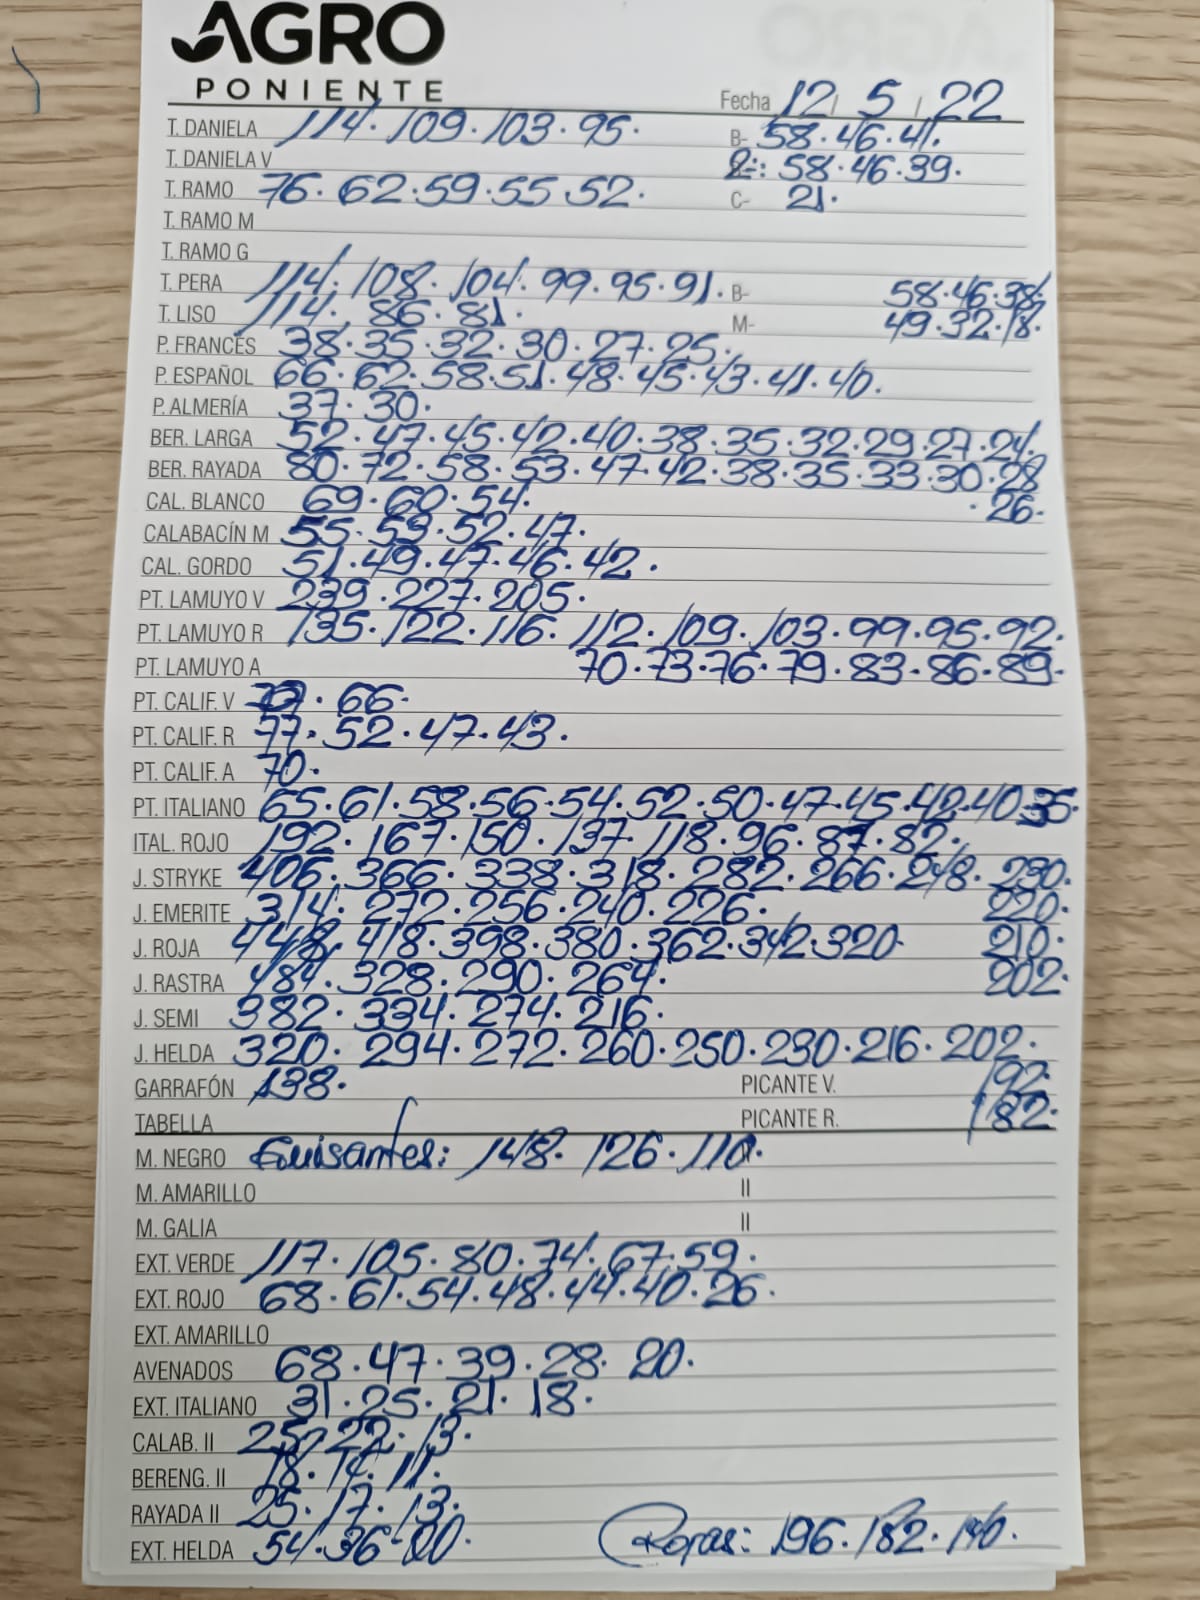 AGRO
PONIENTE
Fecha 12 / 5 / 22
T. DANELA 114. 109. 103. 95. B- 58. 46. 41.
T. DANIELA V 2-: 58. 46. 39.
T. RAMO 76. 62. 59. 55. 52. C- 21.
T. RAMO M
T. RAMO G
T. PERA 114. 108. 104. 99. 95. 91. B- 58. 46. 38.
T. LISO 114. 86. 81. M- 49. 32. 18.
P. FRANCÉS 38. 35. 32. 30. 27. 25.
P. ESPAÑOL 66. 62. 58. 51. 48. 45. 43. 41. 40.
P. ALMERÍA 37. 30.
BER. LARGA 52. 47. 45. 42. 40. 38. 35. 32. 29. 27. 24.
BER. RAYADA 80. 72. 58. 53. 47. 42. 38. 35. 33. 30. 28
CAL. BLANCO 69. 60. 54. . 26.
CALABACÍN M 55. 53. 52. 47.
CAL. GORDO 51. 49. 47. 46. 42.
PT. LAMUYO V 239. 227. 205.
PT. LAMUYO R 135. 122. 116. 112. 109. 103. 99. 95. 92.
PT. LAMUYO A 70. 73. 76. 79. 83. 86. 89.
PT. CALIF. V . 66.
PT. CALIF. R 77. 52. 47. 43.
PT. CALIF. A 70.
PT. ITALIANO 65. 61. 58. 56. 54. 52. 50. 47. 45. 42. 40. 35.
ITAL. ROJO 192. 167. 150. 137. 118. 96. 87. 82.
J. STRYKE 406. 366. 338. 318. 282. 266. 248. 230.
J. EMERITE 314. 272. 256. 240. 226. 220.
J. ROJA 448. 418. 398. 380. 362. 342. 320 210.
J. RASTRA 484. 328. 290. 264. 202.
J. SEMI 382. 334. 274. 216.
J. HELDA 320. 294. 272. 260. 250. 230. 216. 202.
GARRAFÓN 138. PICANTE V. 192.
TABELLA PICANTE R. 182.
M. NEGRO Guisantes: 148. 126. 110.
M. AMARILLO II
M. GALIA II
EXT. VERDE 117. 105. 80. 74. 67. 59.
EXT. ROJO 68. 61. 54. 48. 44. 40. 26.
EXT. AMARILLO
AVENADOS 68. 47. 39. 28. 20.
EXT. ITALIANO 31. 25. 21. 18.
CALAB. II 25. 22. 13.
BERENG. II 18. 14. 11.
RAYADA II 25. 17. 13.
EXT. HELDA 54. 36. 20. Rojas: 196. 182. 140.